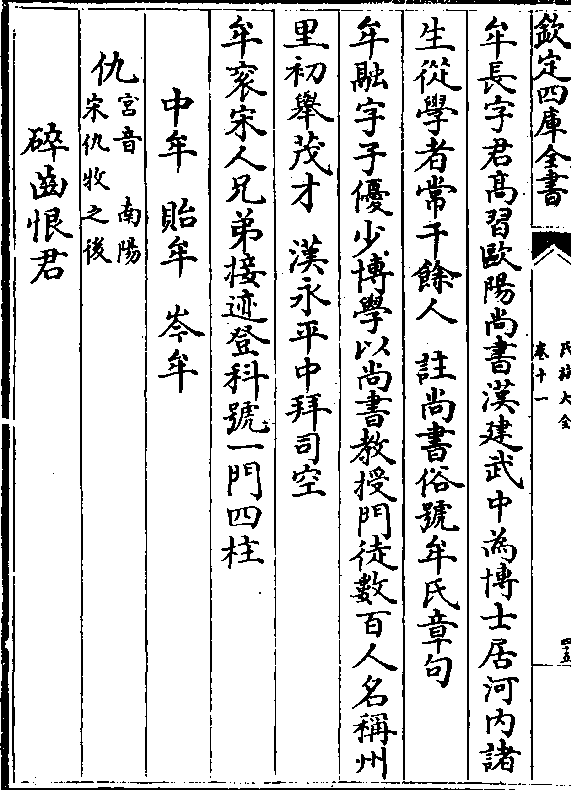 欽定四庫全書
氏族大全
卷十一
四五
牟長字君髙習歐陽尚書漢建武中為博士居河内諸
生從學者常千餘人　註尚書俗號牟氏章句
牟融字子優少博學以尚書教授門徒數百人名稱州
里初舉茂才　漢永平中拜司空
牟衮宋人兄弟接迹登科號一門四柱
中牟　貽牟　岑牟
仇宫音　南陽
宋仇牧之後
碎齒恨君